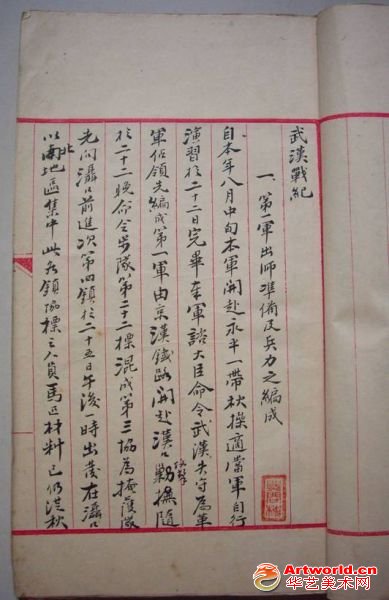 武漢戰紀
一、第一軍出師准備及兵力之編成
自本年八月中旬本軍開赴永平一帶秋操適當軍自行
演習於二十二日完畢奉軍諮大臣命令武漢失守為革
軍佔領先編成第一軍由京漢鐵路開赴漢口勦撫隨
於二十二晚命令步隊第二十二標混成第三協為掩護隊
先向灄口前進次第四鎮於二十五日午後一時出發在灄口
以北南地區集中此為領協標之人員馬匹材料已仍從秋
Artworld.cn
华艺美术网